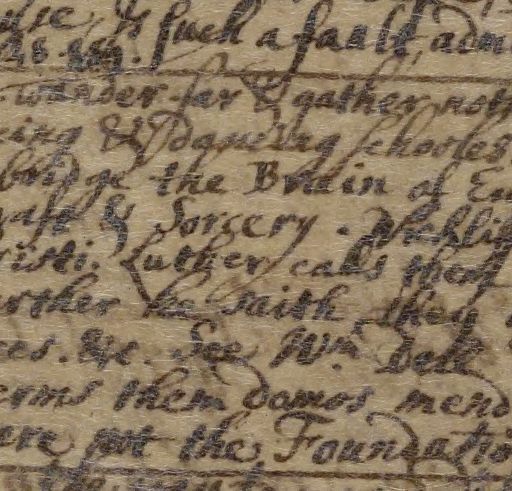 such a fault, adm
wander far & gather not
cing & dancing schooles
bridge the Brain of En
raft & Sorcery. Wickli
risti. Luther calls them
urther he saith they
ces. &c. See Wm. Dell
erms them domos mend
ere not the Foundatio